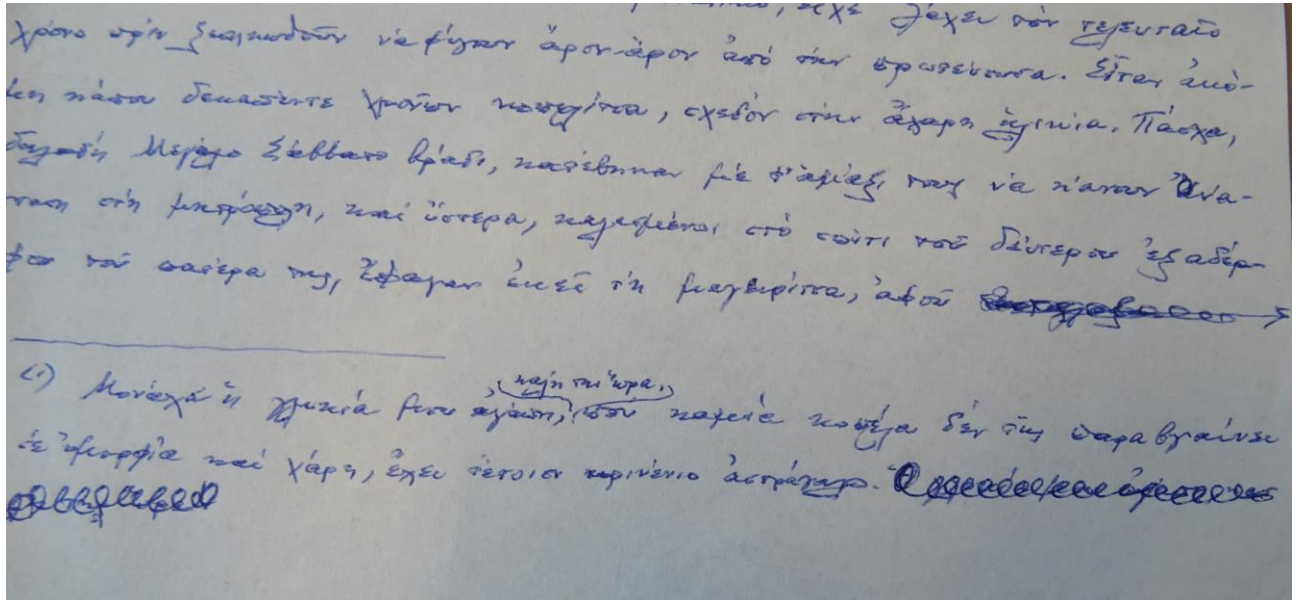 εἶχε λάχει τὸν τελευταῖο
χρόνο πρὶν ξεσηκωθοῦν νὰ φύγουν ἄρον-ἄρον ἀπὸ τὴν πρωτεύουσα. Εἶταν ἀκό-
μη κάπου δεκαπέντε χρονῶν κοπελίτσα, σχεδὸν στὴν ἄχαρη ἡλικία. Πάσχα,
δηλαδὴ Μεγάλο Σάββατο βράδι, κατέβηκαν μὲ τ' ἁμάξι τους νὰ κάνουν Ἀνά-
σταση στὴ μητρόπολη, καὶ ὕστερα, καλεσμένοι στὸ σπίτι τοῦ δεύτερου ἐξαδέρ-
φου τοῦ πατέρα της, ἔφαγαν ἐκεῖ τὴ μαγειρίτσα, ἀφοῦ
καλή της ὥρα,
(1) Μονάχα ἡ γλυκιά μου ἀγάπη, ποὺ καμιὰ κοπέλα δὲν τὴν παραβγαίνει
σὲ ὀμορφιὰ καὶ χάρη, ἔχει τέτοιον κρινένιο ἀστράγαλο.